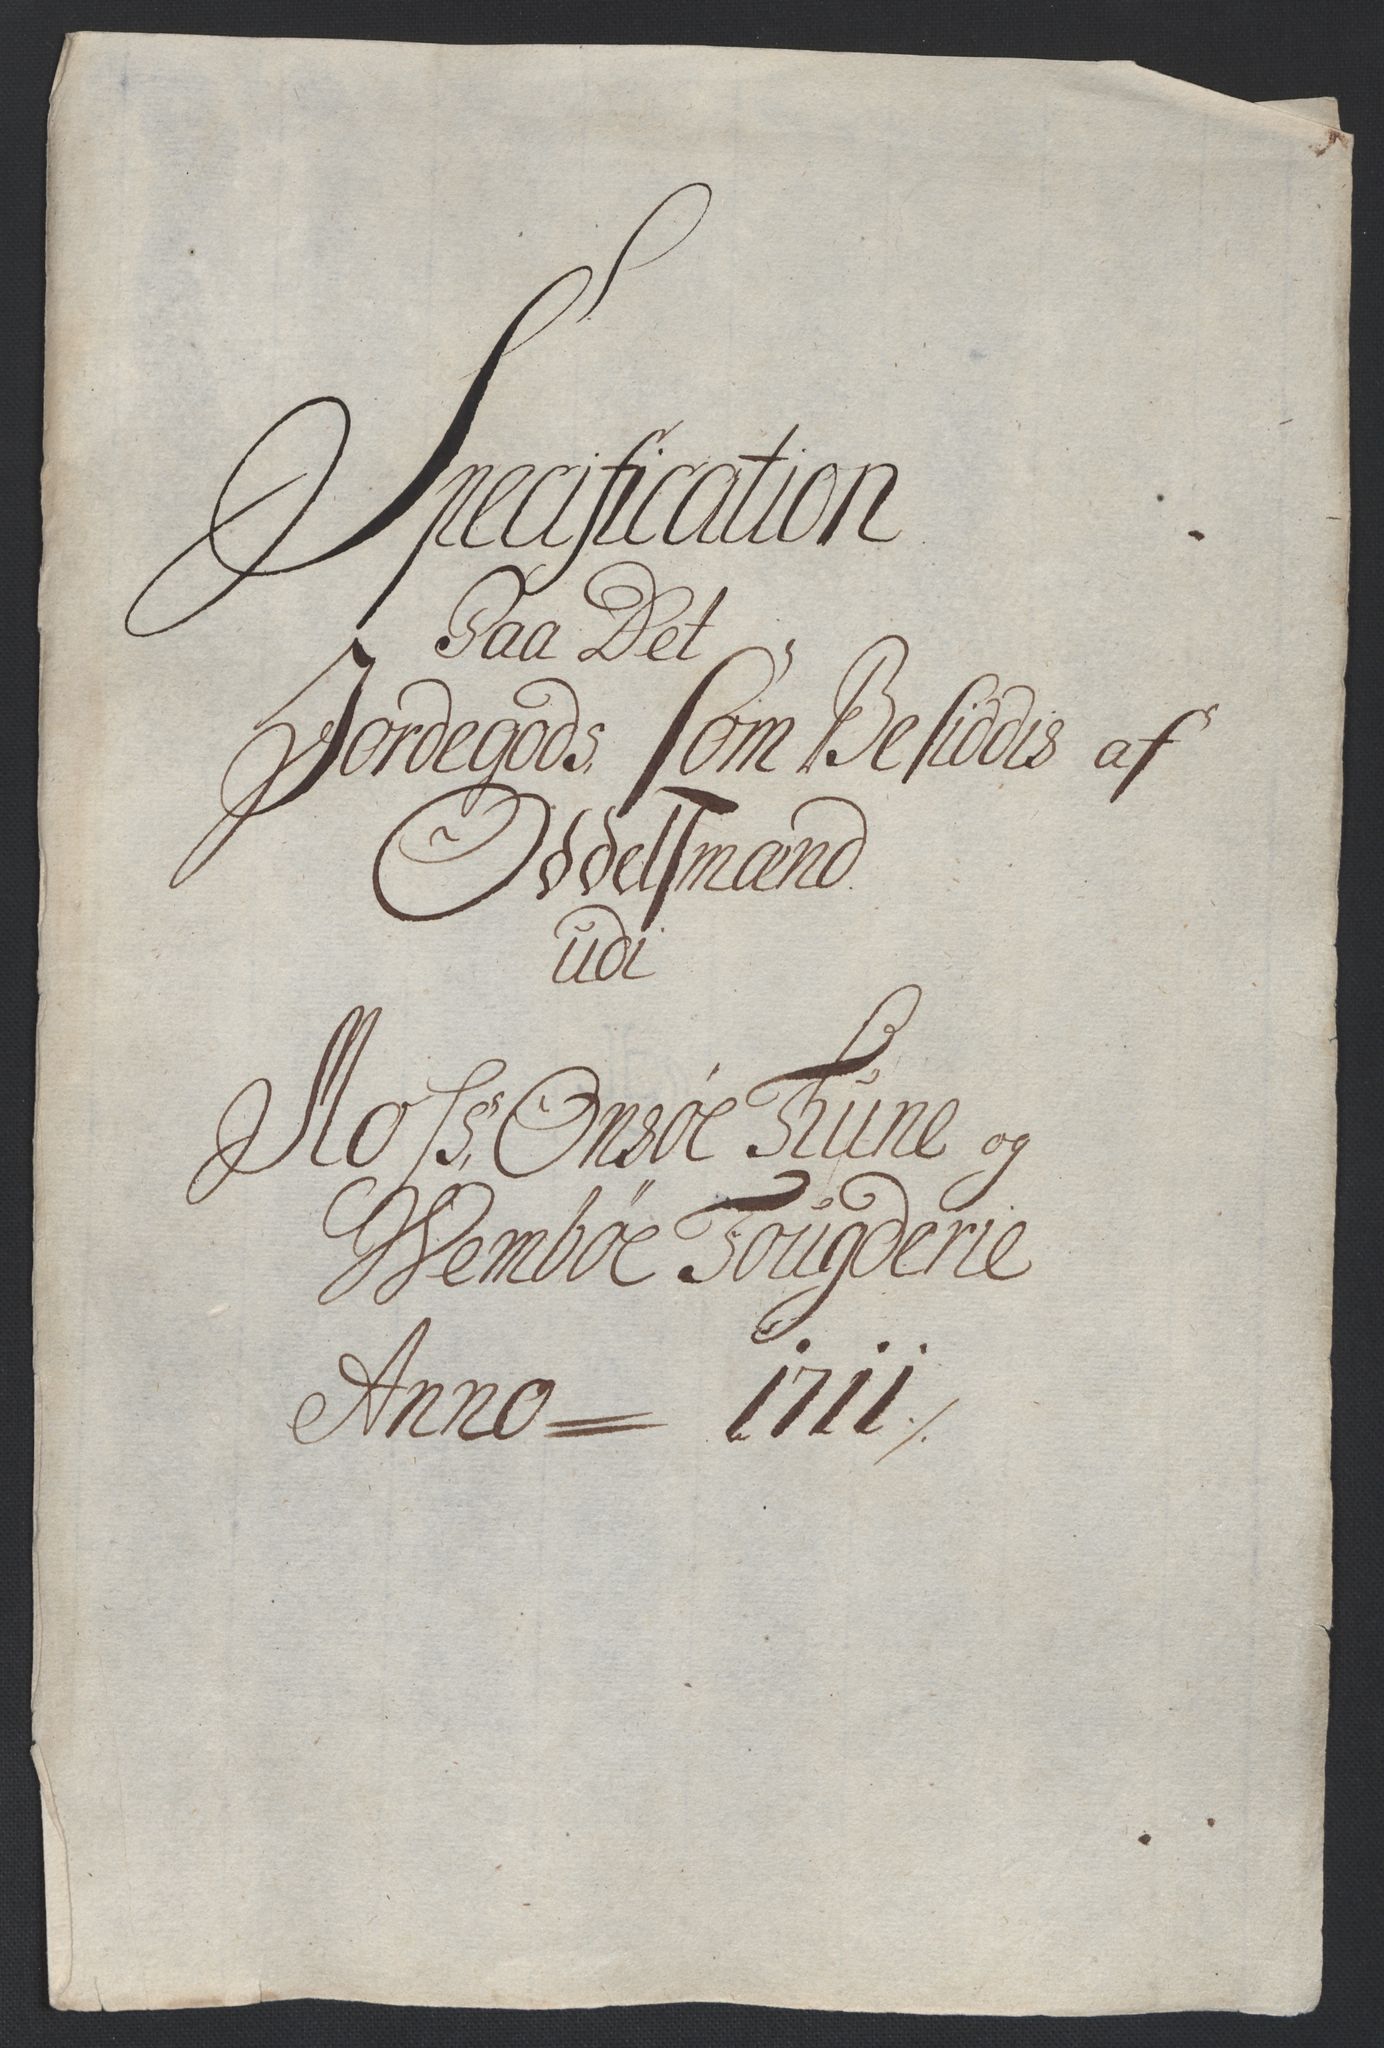 Specification
Paa Det
Jordegods, som Besiddis af
Oddelsmænd
udi
Moss, Onsøe Thüne og
Wembøe Fougderie
Anno = 1711 ./.